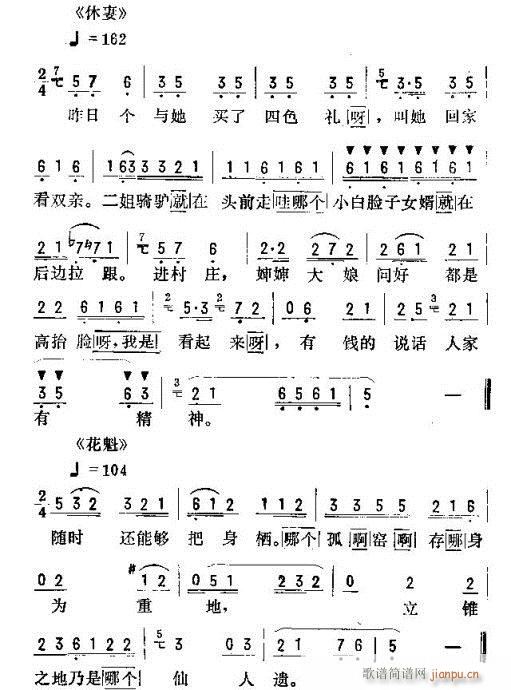 《休妻》
♩=162
2/4 7 5 7 6 | 3 5 3 5 | 3 5 3 5 | 5 3·5 3 5 |
昨日个与她买了四色礼呀，叫她回家
6 1 6 | 1 6 3 3 3 2 1 | 1 1 6 1 6 1 | 6 1 6 1 6 1 6 1 |
看双亲。二姐骑驴就在头前走哇哪个小白脸子女婿就在
2 1 7 7 1 | 7 5 7 6 | 2·2 2 7 2 | 2 6 1 2 1 |
后边拉跟。进村庄，婶婶大娘问好都是
2 2 6 1 6 1 | 2 5·3 2 7 2 | 0 6 2 1 | 2 2 3 2 1 |
高抬脸呀，我是看起来呀，有钱的说话人家
3 5 6 3 | 3 2 1 6 5 6 1 | 5 — ‖
有精神。
《花魁》
♩=104
2/4 5 3 2 3 2 1 | 6 1 2 1 1 2 | 3 3 5 5 2 1 6 |
随时还能够把身栖。哪个孤啊窑啊存哪身
0 2 #1 2 | 0 5 1 2 3 2 | 0 2 2 |
为重地，立锥
2 3 6 1 2 1 | 5 3 0 3 | 2 1 7 6 | 5 5 0 ‖
之地乃是哪个仙人遗。
歌谱简谱网
www.jianpu.cn